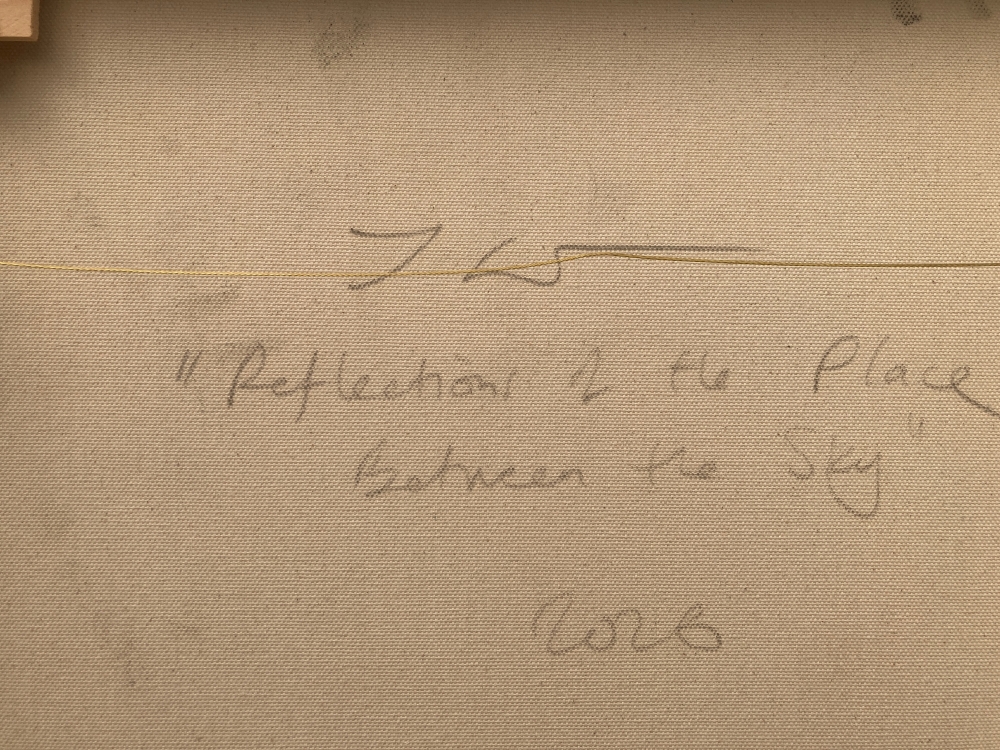 "Reflections of the Place
Between the Sky"
2026